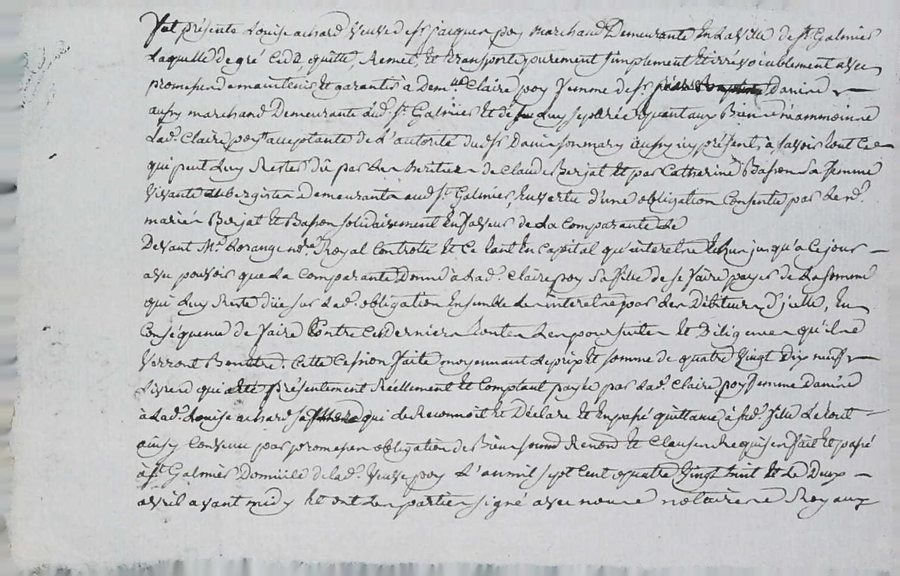 fut présente Louise achard veuve de sr jacques poy marchand Demeurante En La ville de st Galmier
Laquelle de gré Cede, quitte, Remet, et transporte purement simplement et irrevocablement avec
promesse de maintenir et garantir à demlle Claire poy femme de sr Danière
aussy marchand Demeurante aud. st Galmier et de Luy separée quant aux Biens néammoins
Lad. Claire poy acceptante de L'autorité dud sr Danier son mary aussy icy présent, à savoir tout Ce
qui peut Luy Rester dû par Les heritiers de Claude Berjat et par Catherine Basson Sa femme
vivants aubergistes Demeurants aud st Galmier, En vertu d'une obligation Consentie par Les nd.
mariés Berjat et Basson solidairement En faveur de La Comparante Le
Devant Me Lorange nore Royal Controlé et Ce tant En Capital qu'interets Echus jusqu'a Ce jour
avec pouvoir que La Comparante Donne à Lad. Claire poy Sa fille de se faire payer de La somme
qui Luy Reste düe sur Lad. obligation Ensemble Les interets par Les Débiteurs D'icelle, En
Conséquence de faire Contre Ces derniers toutes Les poursuites Et Diligences qu'ils
verront Bon être. Cette Cession faite moyennant Le prix et somme de quatre vingt dix neuf
Livres qui a été présentement Réellement et Comptant payée par Lad. Claire poy femme Danière
à Lad. Louise achard sa mere qui Le Reconnoit Le Déclare et En passe quittance à sad. fille Le tout
ainsy Convenu par promesses obligation de Biens soumis Renon et Clauses Requises fait Et passé
à st Galmier Domicile de Lad. veuve poy L'an mil sept Cent quatre vingt huit et Le Deux
avril avant midy Et ont Les parties signé avec nous notaires Royaux